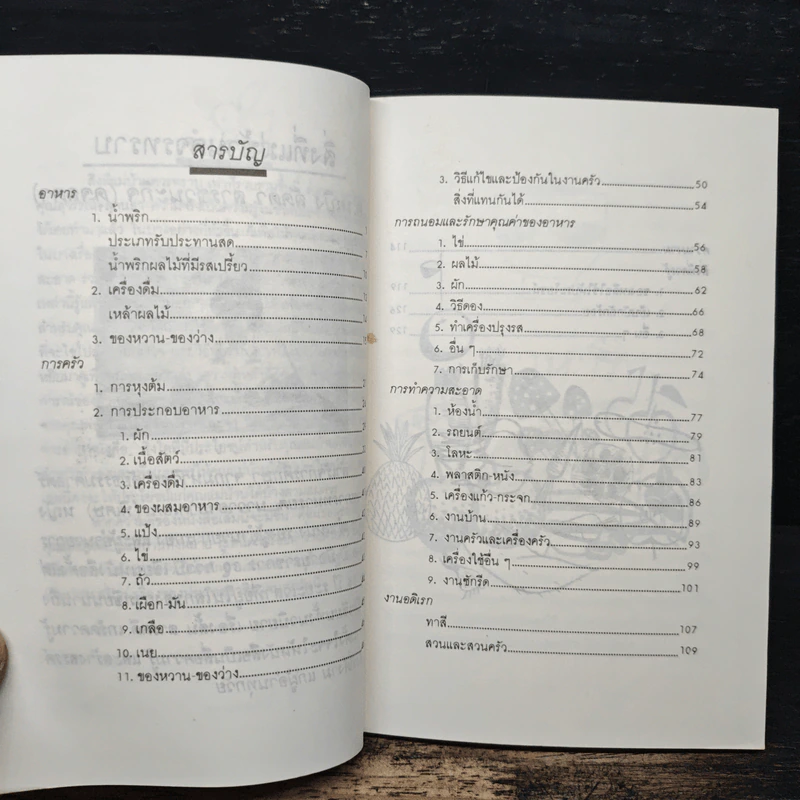 สารบัญ
อาหาร
1. น้ำพริก
ประเภทรับประทานสด
น้ำพริกผลไม้ที่มีรสเปรี้ยว
2. เครื่องดื่ม
เหล้าผลไม้
3. ของหวาน-ของว่าง
การครัว
1. การหุงต้ม
2. การประกอบอาหาร
1. ผัก
2. เนื้อสัตว์
3. เครื่องดื่ม
4. ของผสมอาหาร
5. แป้ง
6. ไข่
7. ถั่ว
8. เผือก-มัน
9. เกลือ
10. เนย
11. ของหวาน-ของว่าง
3. วิธีแก้ไขและป้องกันในงานครัว 50
สิ่งที่แทนกันได้ 54
การถนอมและรักษาคุณค่าของอาหาร
1. ไข่ 56
2. ผลไม้ 58
3. ผัก 62
4. วิธีดอง 66
5. ทำเครื่องปรุงรส 68
6. อื่น ๆ 72
7. การเก็บรักษา 74
การทำความสะอาด
1. ห้องน้ำ 77
2. รถยนต์ 79
3. โลหะ 81
4. พลาสติก-หนัง 83
5. เครื่องแก้ว-กระจก 86
6. งานบ้าน 89
7. งานครัวและเครื่องครัว 93
8. เครื่องใช้อื่น ๆ 99
9. งานซักรีด 101
งานอดิเรก
ทาสี 107
สวนและสวนครัว 109